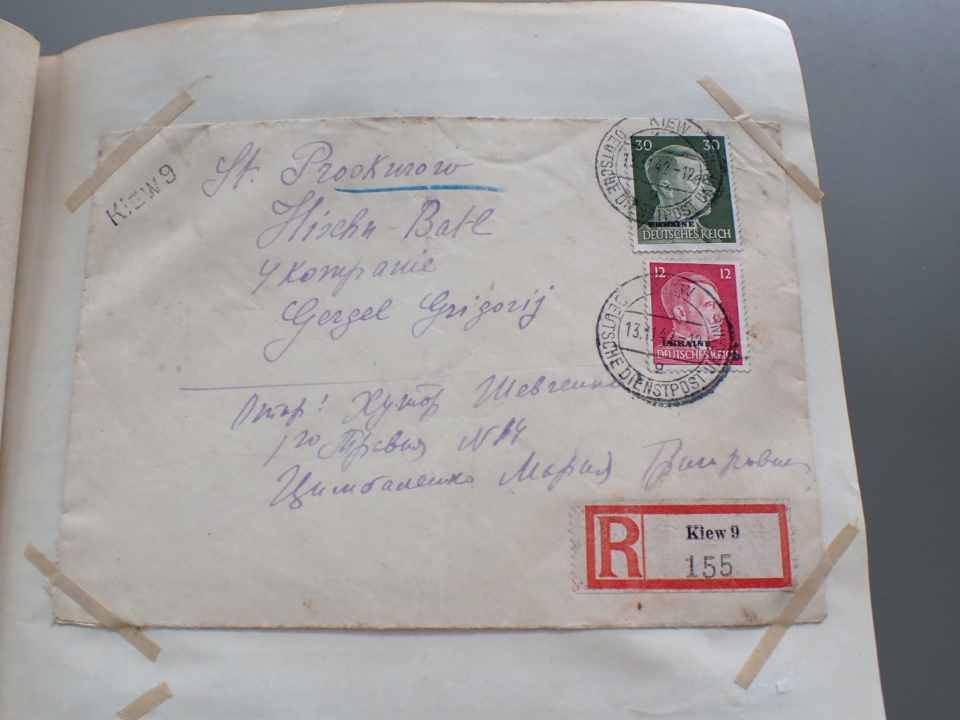 KIEW 9
St. Prookurow
Hischn-Batl
4 Kompanie
Gergel Grigorij
Отпр: Хутор Шевченко
No 14
Цимбаленко Мария Григорьевна
KIEW
DEUTSCHE DIENSTPOST UKRAINE
30 30
UKRAINE
DEUTSCHES REICH
KIEW
13.11.42
DEUTSCHE DIENSTPOST UKRAINE
g
12 12
UKRAINE
DEUTSCHES REICH
R
Kiew 9
155